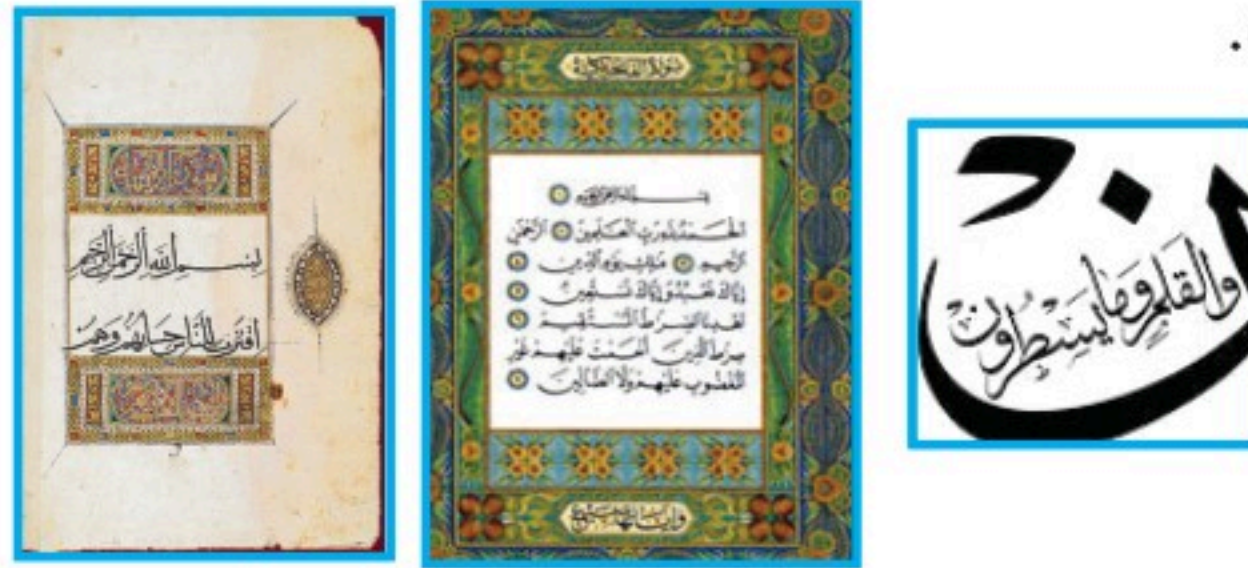 بسم الله الرحمن الرحيم
اقترب للناس حسابهم وهم
سورة الفاتحة
بسم الله الرحمن الرحيم ١
الحمد لله رب العلمين ٢ الرحمن
الرحيم ٣ ملك يوم الدين ٤
إياك نعبد وإياك نستعين ٥
اهدنا الصراط المستقيم ٦
صراط الذين أنعمت عليهم غير
المغضوب عليهم ولا الضالين ٧
وآياتها سبع
ن
والقلم وما يسطرون